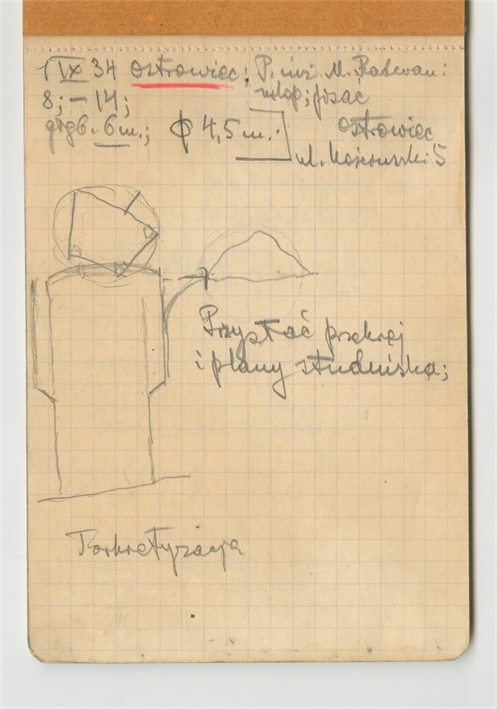 1 IX 34 Ostrowiec; P. inż. M. Radwan:
8; – 14;
głęb. 6 m.; ϕ 4,5 m.
Ostrowiec
ul. 5
Przysłać przekrój
i plany studniska;
Torkretyzacja